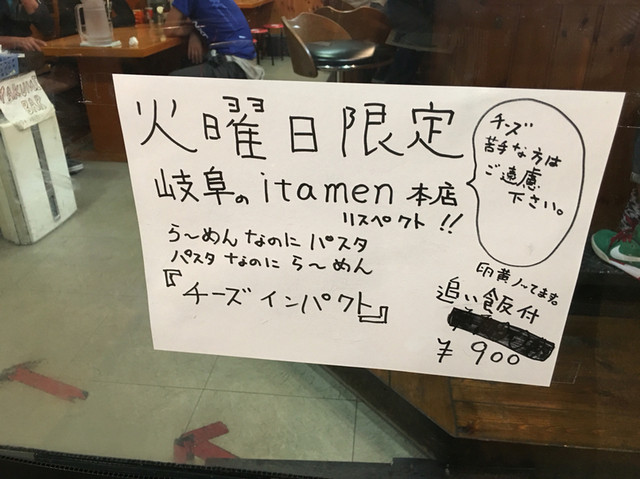 火曜日限定
岐阜のitamen本店
リスペクト!!
ら〜めんなのにパスタ
パスタなのにら〜めん
『チーズインパクト』
チーズ
苦手な方は
ご遠慮
下さい。
卵黄ノッてます。
追い飯付
¥900